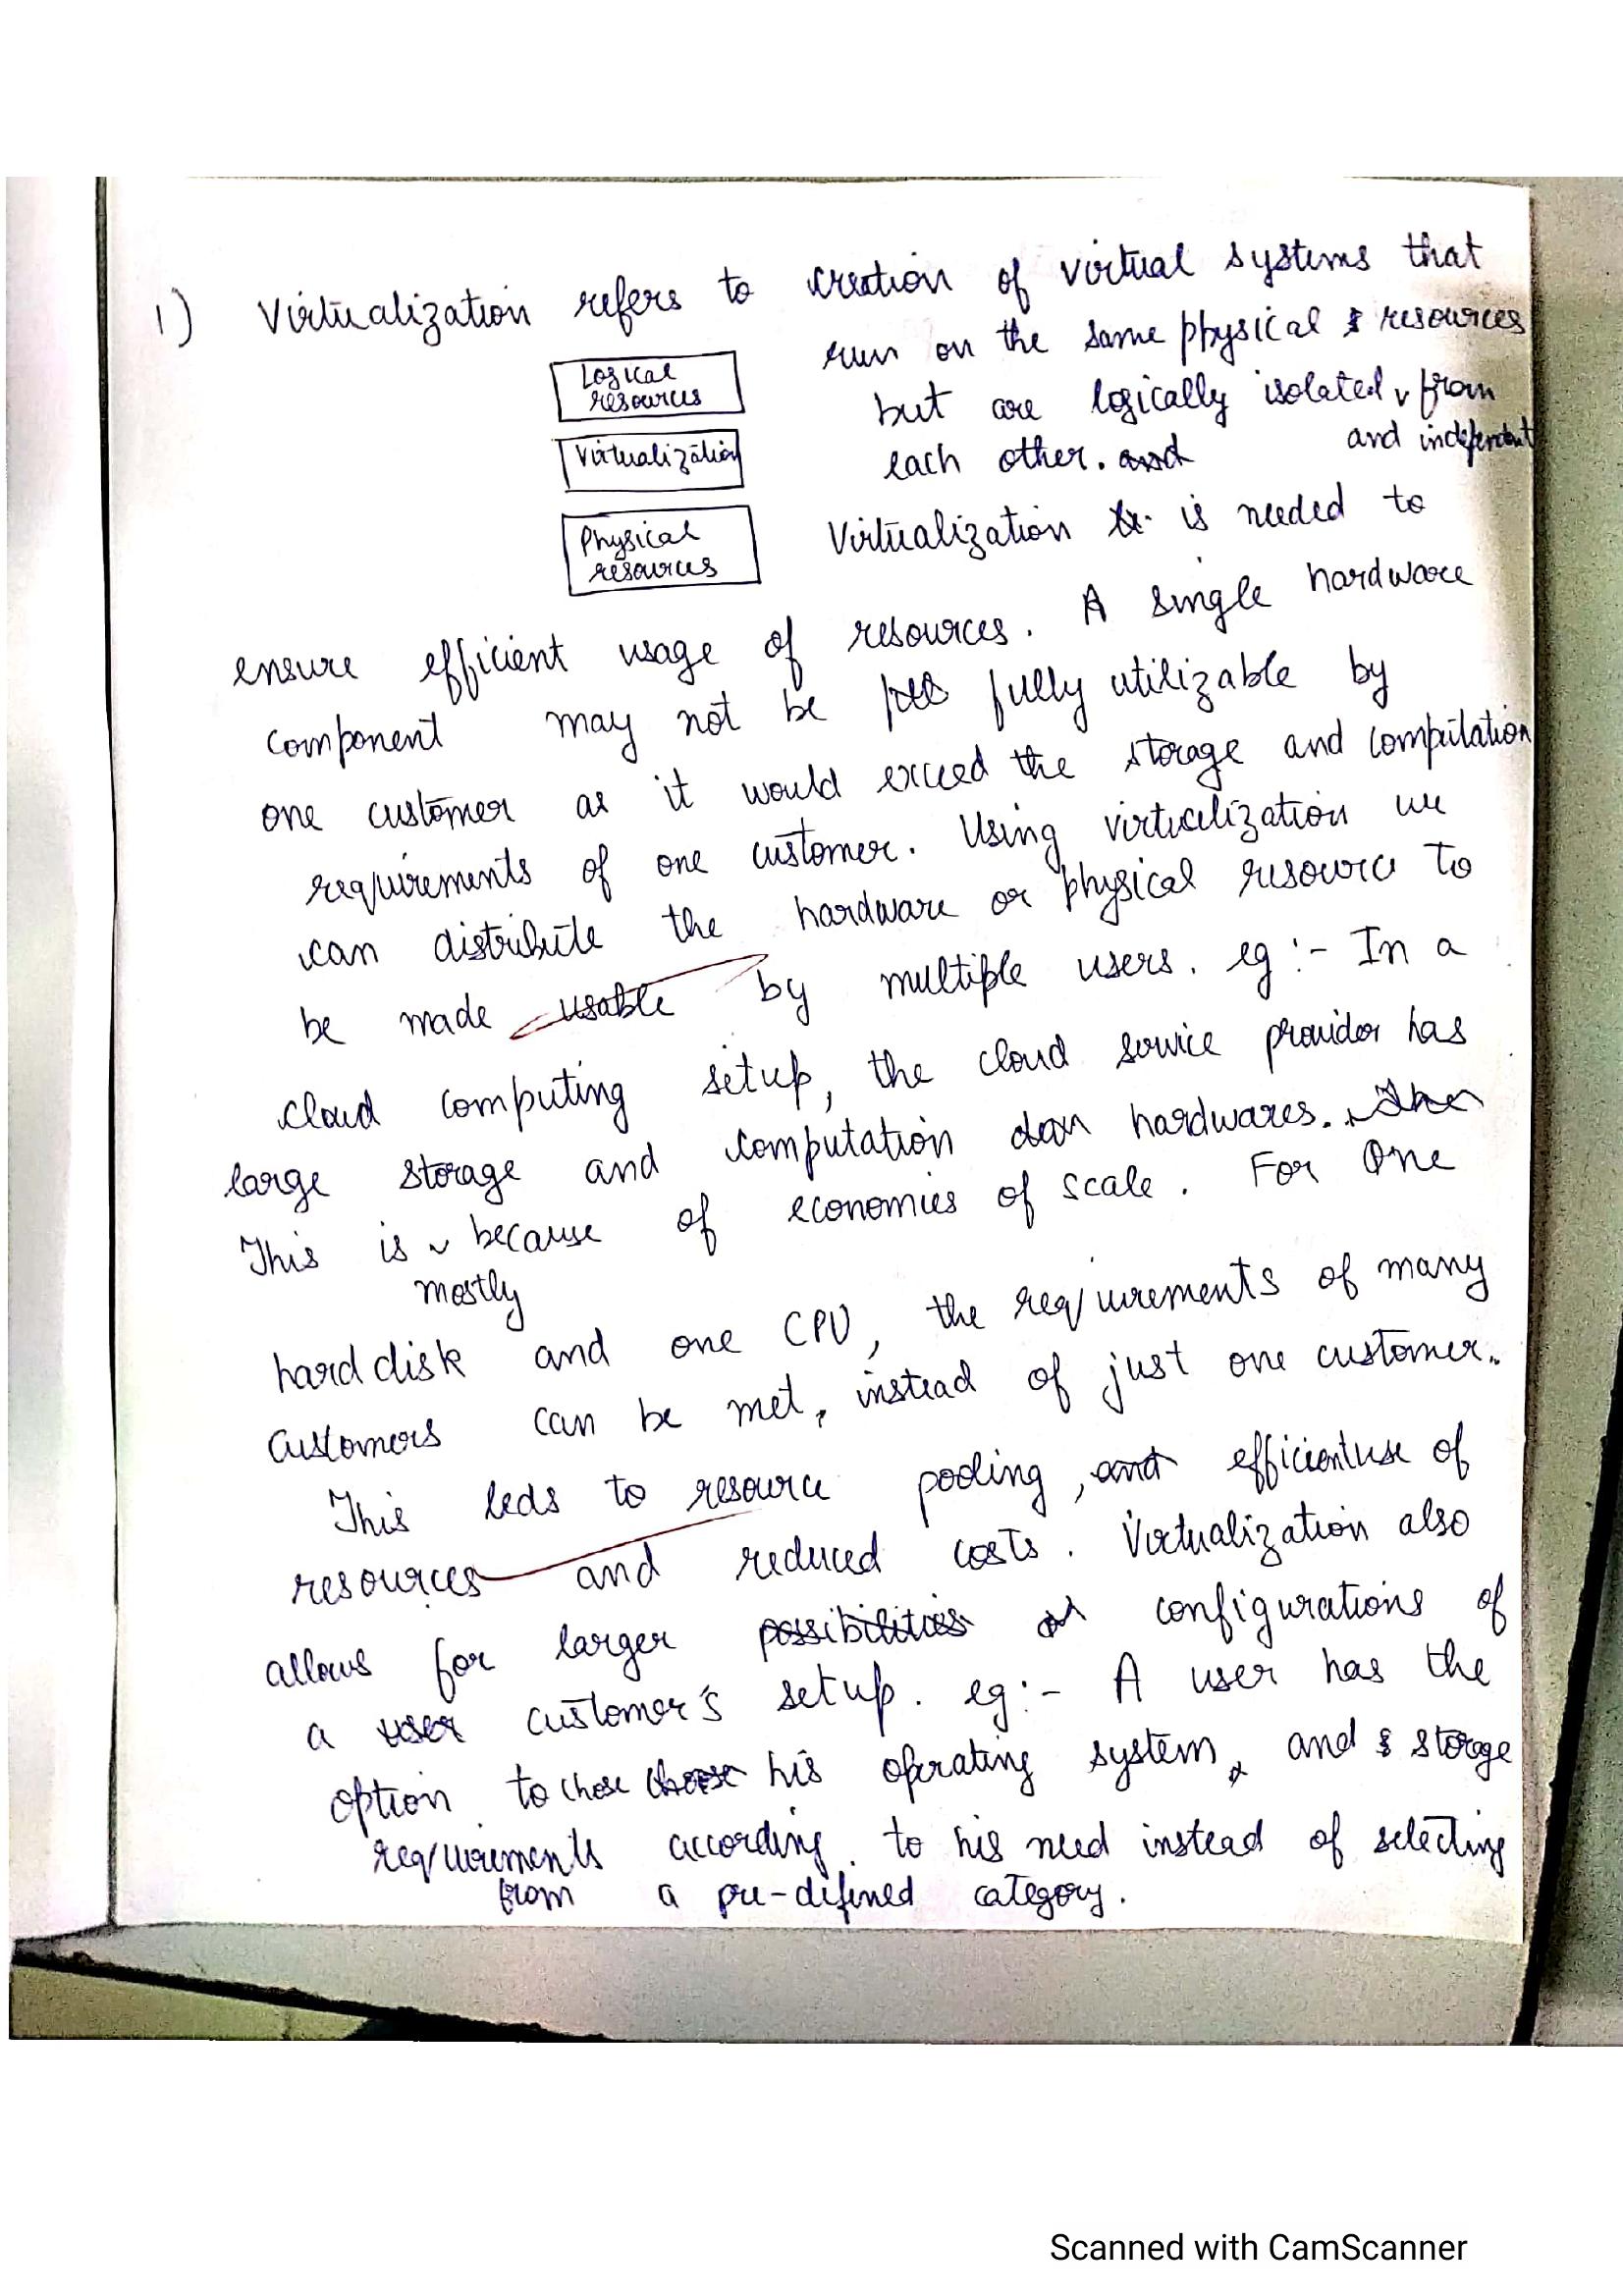 1) Virtualization refers to creation of virtual systems that
run on the same physical resources
Logical
resources
but are logically isolated from
and independent
Virtualization
each other. and
Physical
resources
Virtualization is needed to
ensure efficient usage of resources. A single hardware
component may not be fully utilizable by
one customer as it would exceed the storage and computation
requirements of one customer. Using virtualization we
can distribute the hardware or physical resource to
be made usable by multiple users. eg:- In a
cloud computing setup, the cloud service provider has
large storage and computation hardwares.
This is because of economies of scale. For One
mostly
hard disk and one CPU, the requirements of many
customers can be met, instead of just one customer.
This leds to resource pooling, and efficient use of
resources and reduced costs. Virtualization also
allows for larger possibilities configurations of
a user customer's setup. eg:- A user has the
option to chose choose his operating system, and storage
requirements according to his need instead of selecting
from a pre-defined category.
Scanned with CamScanner